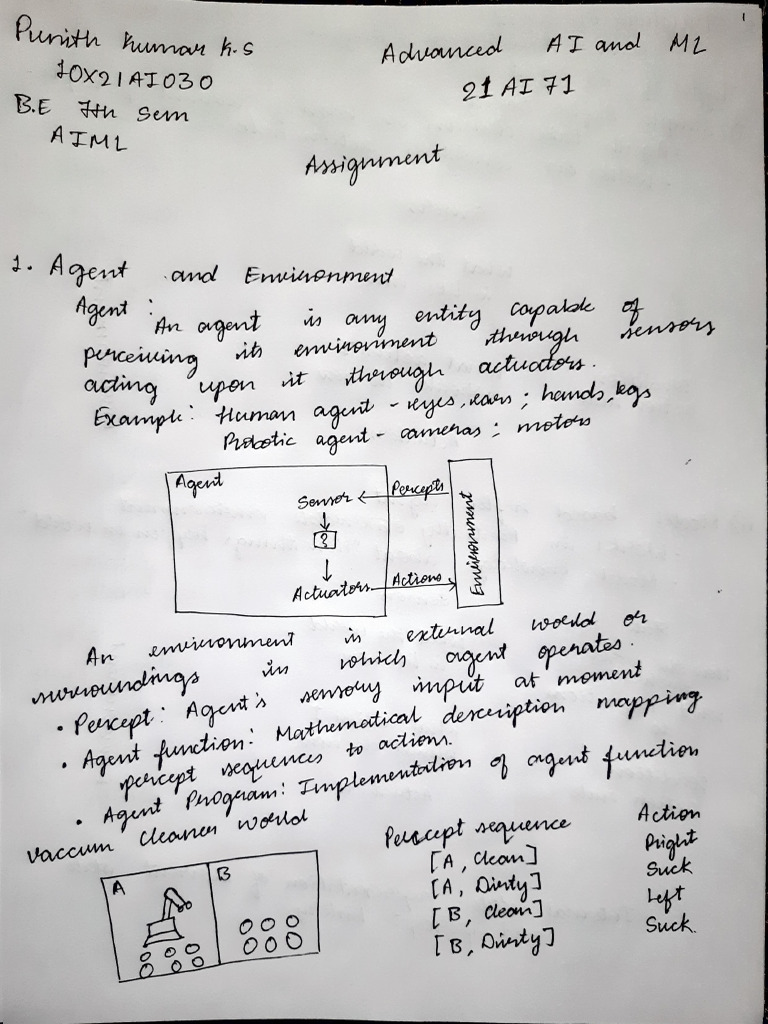 1
Punith Kumar K.S
Advanced AI and ML
10X21AI030
21 AI 71
B.E 7th Sem
AIML
Assignment
1. Agent and Environment
Agent :
An agent is any entity capable of
perceiving its environment through sensors
acting upon it through actuators.
Example: Human agent - eyes, ears ; hands, legs
Robotic agent - cameras ; motors
Agent
Sensor
Percepts
?
Actuators
Actions
Environment
An environment is external world or
surroundings in which agent operates.
• Percept: Agent's sensory input at moment
• Agent function: Mathematical description mapping
percept sequences to actions.
• Agent Program: Implementation of agent function
vaccum cleaner world
Percept sequence Action
[A, Clean] Right
[A, Dirty] Suck
[B, Clean] Left
[B, Dirty] Suck.
A B